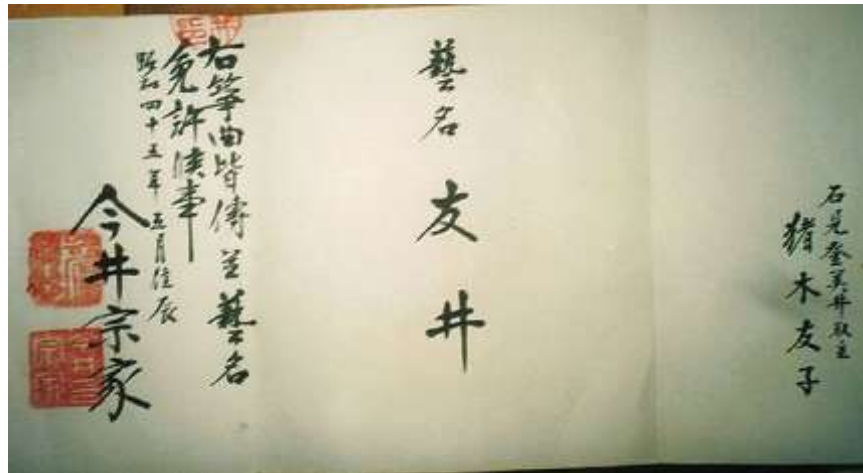 石見登美井取立
猪木友子
藝名
友井
右箏曲皆傳並藝名
免許候事
昭和四十五年五月佳辰
今井宗家